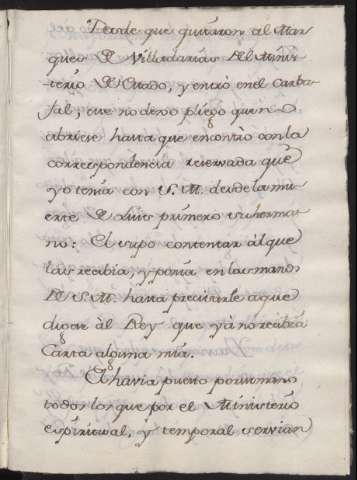 Desde que quitaron al Mar-
ques de Villadarias del Minis-
terio de Estado, y entró en el Carba-
jal, que no dexo pliego que no
abriese hasta que encontró con la
correspondencia reservada que
yo tenia con S. M. desde la mu-
erte de Luis primero su herma-
no: El supo contentar al que
las recibia, y ponia en las manos
de S. M. hasta precisarle a que
dijese àl Rey que yà no recibia
Carta alguna mia.
El havia puesto por su mano
todos los que por el Ministerio
espiritual, y temporal servian